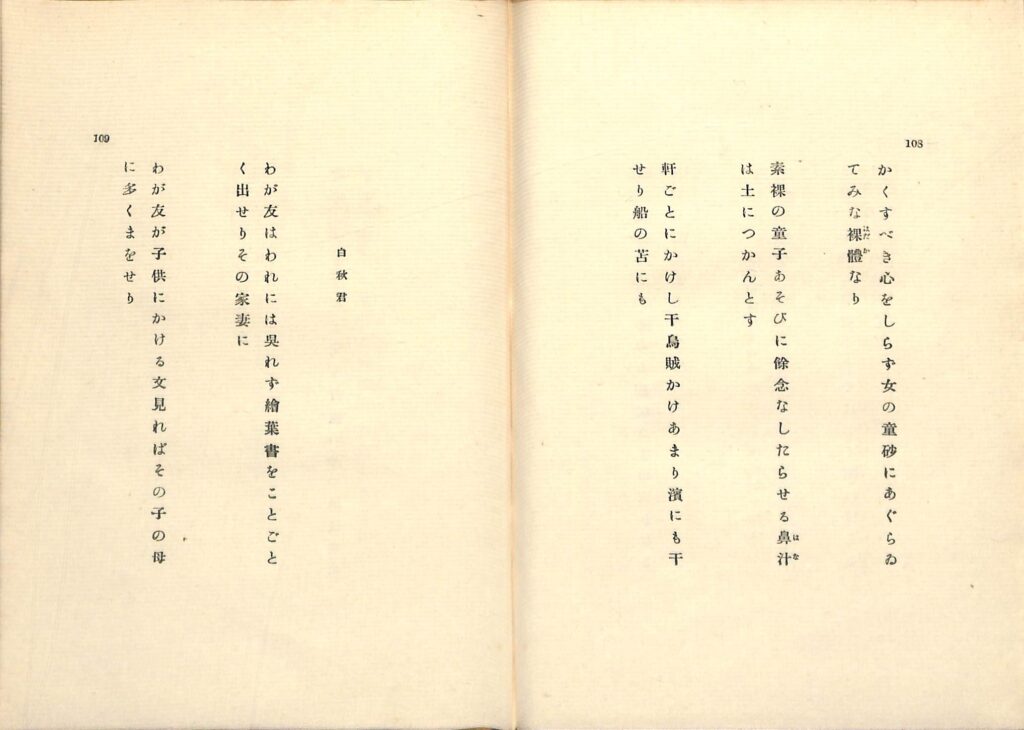 108
かくすべき心をしらず女の童砂にあぐらゐ
てみな裸體なり
素裸の童子あそびに餘念なしたらせる鼻汁
は土につかんとす
軒ごとにかけし干烏賊かけあまり濱にも干
せり船の苫にも
109
白秋君
わが友はわれには呉れず繪葉書をことごと
く出せりその家妻に
わが友が子供にかける文見ればその子の母
に多くまをせり